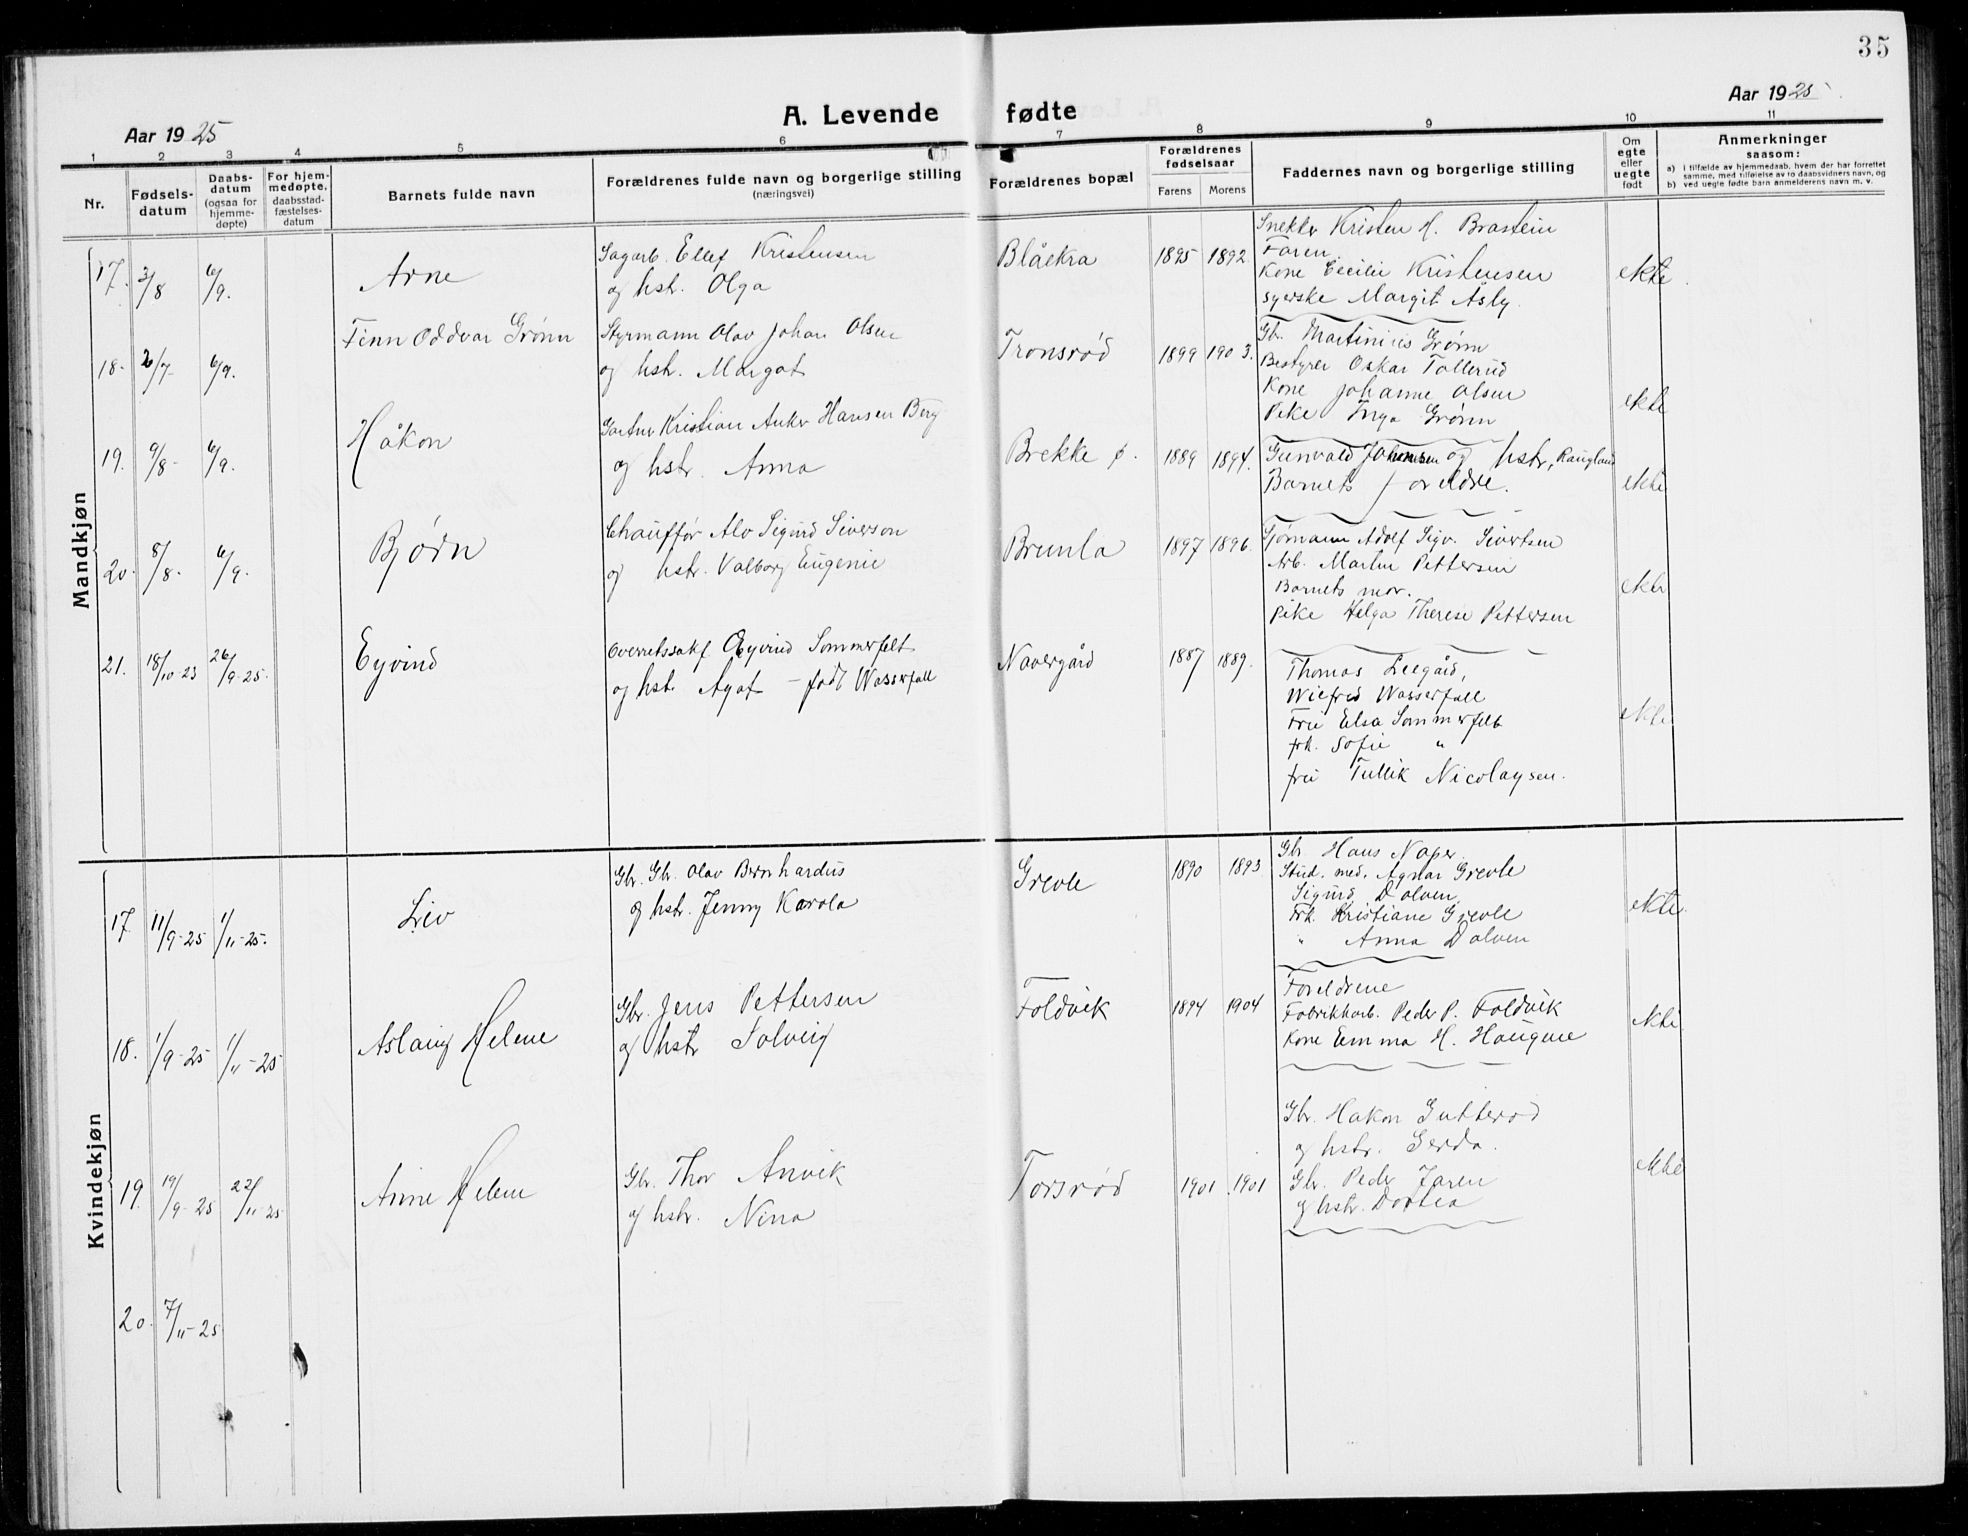 35
A. Levende fødte
Aar 1925
Aar 1925
1 2 3 4 5 6 7 8 9 10 11
Nr.
Fødsels-
datum
Daabs-
datum
(ogsaa for
hjemme-
døpte)
For hjem-
medøpte,
daabsstad-
fæstelses-
datum
Barnets fulde navn
Forældrenes fulde navn og borgerlige stilling
(næringsvei)
Forældrenes bopæl
Forældrenes
fødselsaar
Farens Morens
Faddernes navn og borgerlige stilling
Om
egte
eller
uegte
født
Anmerkninger
saasom:
a) i tilfælde av hjemmedaab, hvem der har forrettet
samme, med tilføielse av to daabsvidners navn, og
b) ved uegte fødte barn anmelderens navn m. v.
Mandkjøn
17. 3/8 6/9. Arne
Sagarb. Ellef Kristensen
og hstr. Olga
Blåekra 1895 1892.
Snekker Kristen H. Brastein
Faren
Kone Cecilie Kristensen
syerske Margit Åsly.
ekte.
18. 2/7- 6/9. Finn Oddvar Grönn
Styrmann Olav Johan Olsen
og hstr. Margot
Tronsrød 1899 1903.
Gbr. Martinius Grönn
Bestyrer Oskar Tollerud
Kone Johanne Olsen
Pike Inga Grönn
ekte
19. 9/8- 6/9. Håkon
Gartner Kristian Anker Hansen Berg
og hstr. Anna
Brekke ø. 1889 1894.
Gunvald Johansen og hstr, Raugland
Barnets foreldre.
ekte
20. 8/8- 6/9. Bjørn
Chauffør Alv Sigurd Siverson
og hstr. Valborg Eugenie
Brunla 1897 1896.
Sjømann Adolf Sigv. Sivertsen
Arb. Martin Pettersen
Barnets mor.
pike Helga Therese Pettersen
ekte
21. 18/10-23 26/9-25. Eyvind
Overretssakf Eyvind Sommerfelt
og hstr. Agot - født Wasserfall
Navergård 1887 1889.
Thomas Leegård,
Wilfred Wasserfall
Fru Elsa Sommerfelt
frk. Sofie "
fru Tullik Nicolaysen.
ekte
Kvindekjøn
17 11/9-25 1/11-25. Liv
Gbr. Gbr. Olav Bernhardus
og hstr. Jenny Karola
Grevle 1890 1893
Gbr. Hans Naper
Stud. med. Agnar Grevle
Sigurd Dolven
Frk. Kristiane Grevle
" Anna Dolven
ekte.
18. 1/9-25 1/11-25 Aslaug Helene
Gbr. Jens Pettersen
og hstr Solveig
Foldvik 1894 1904
Foreldrene
Fabrikkarb. Peder P. Foldvik
Kone Emma H. Haugene
ekte
19. 19/9-25 22/11-25 Anne Helene
Gbr. Thor Anvik
og hstr. Nina
Torsrød 1901 1901
Gbr. Hakon Gutterød
og hstr. Gerda.
Gbr. Peder Jaren
og hstr. Dortea
ekte
20. 7/11-25